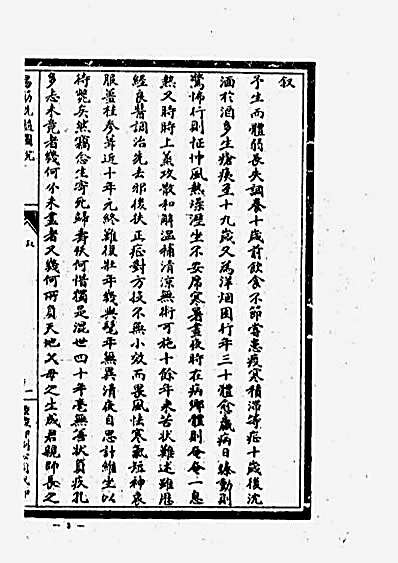 叙
予生而體弱長失調養十歲前飲食不節嘗患疫寒積滯等症十歲後沈
湎於酒多生瘡痍至十九歲又為洋烟困行年三十體愈羸病日緣動則
驚怖行則怔忡風熱燥溼坐不安席寒暑晝夜時在病鄉體則奄奄一息
熱又時時上蒸攻散和解溫補清涼無術可施十餘年來苦狀難述雖歷
經良醫調治先去邪後扶正症對方投不無小效而畏風怯寒氣短神衰
服蓍桂參茸近十年元終難復壯年幾與髦年無異清夜自思計維坐以
待斃矣然竊念生寄死歸壽殀何惜獨是混世四十年毫無善狀負疚孔
多志未竟者幾何分未盡者又幾何兩負天地父母之生成君親師長之
- 3 -